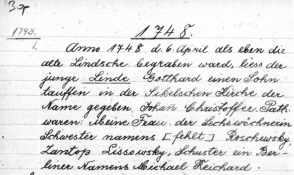 1748.
1748.
1. Anno 1748 d. 6 April als eben die
alte Lindsche begraben ward, liess der
junge Linde Gotthard einen Sohn
tauffen in der Sikelschen Kirche der
Name gegeben Johan Christoffer. Path.
waren: Meine Frau, der Sechswöchnerin
Schwester namens [fehlt] Roschewsky,
Zantop Lissowsky, Schuster ein Ber-
liner Namens Michael Reichard.